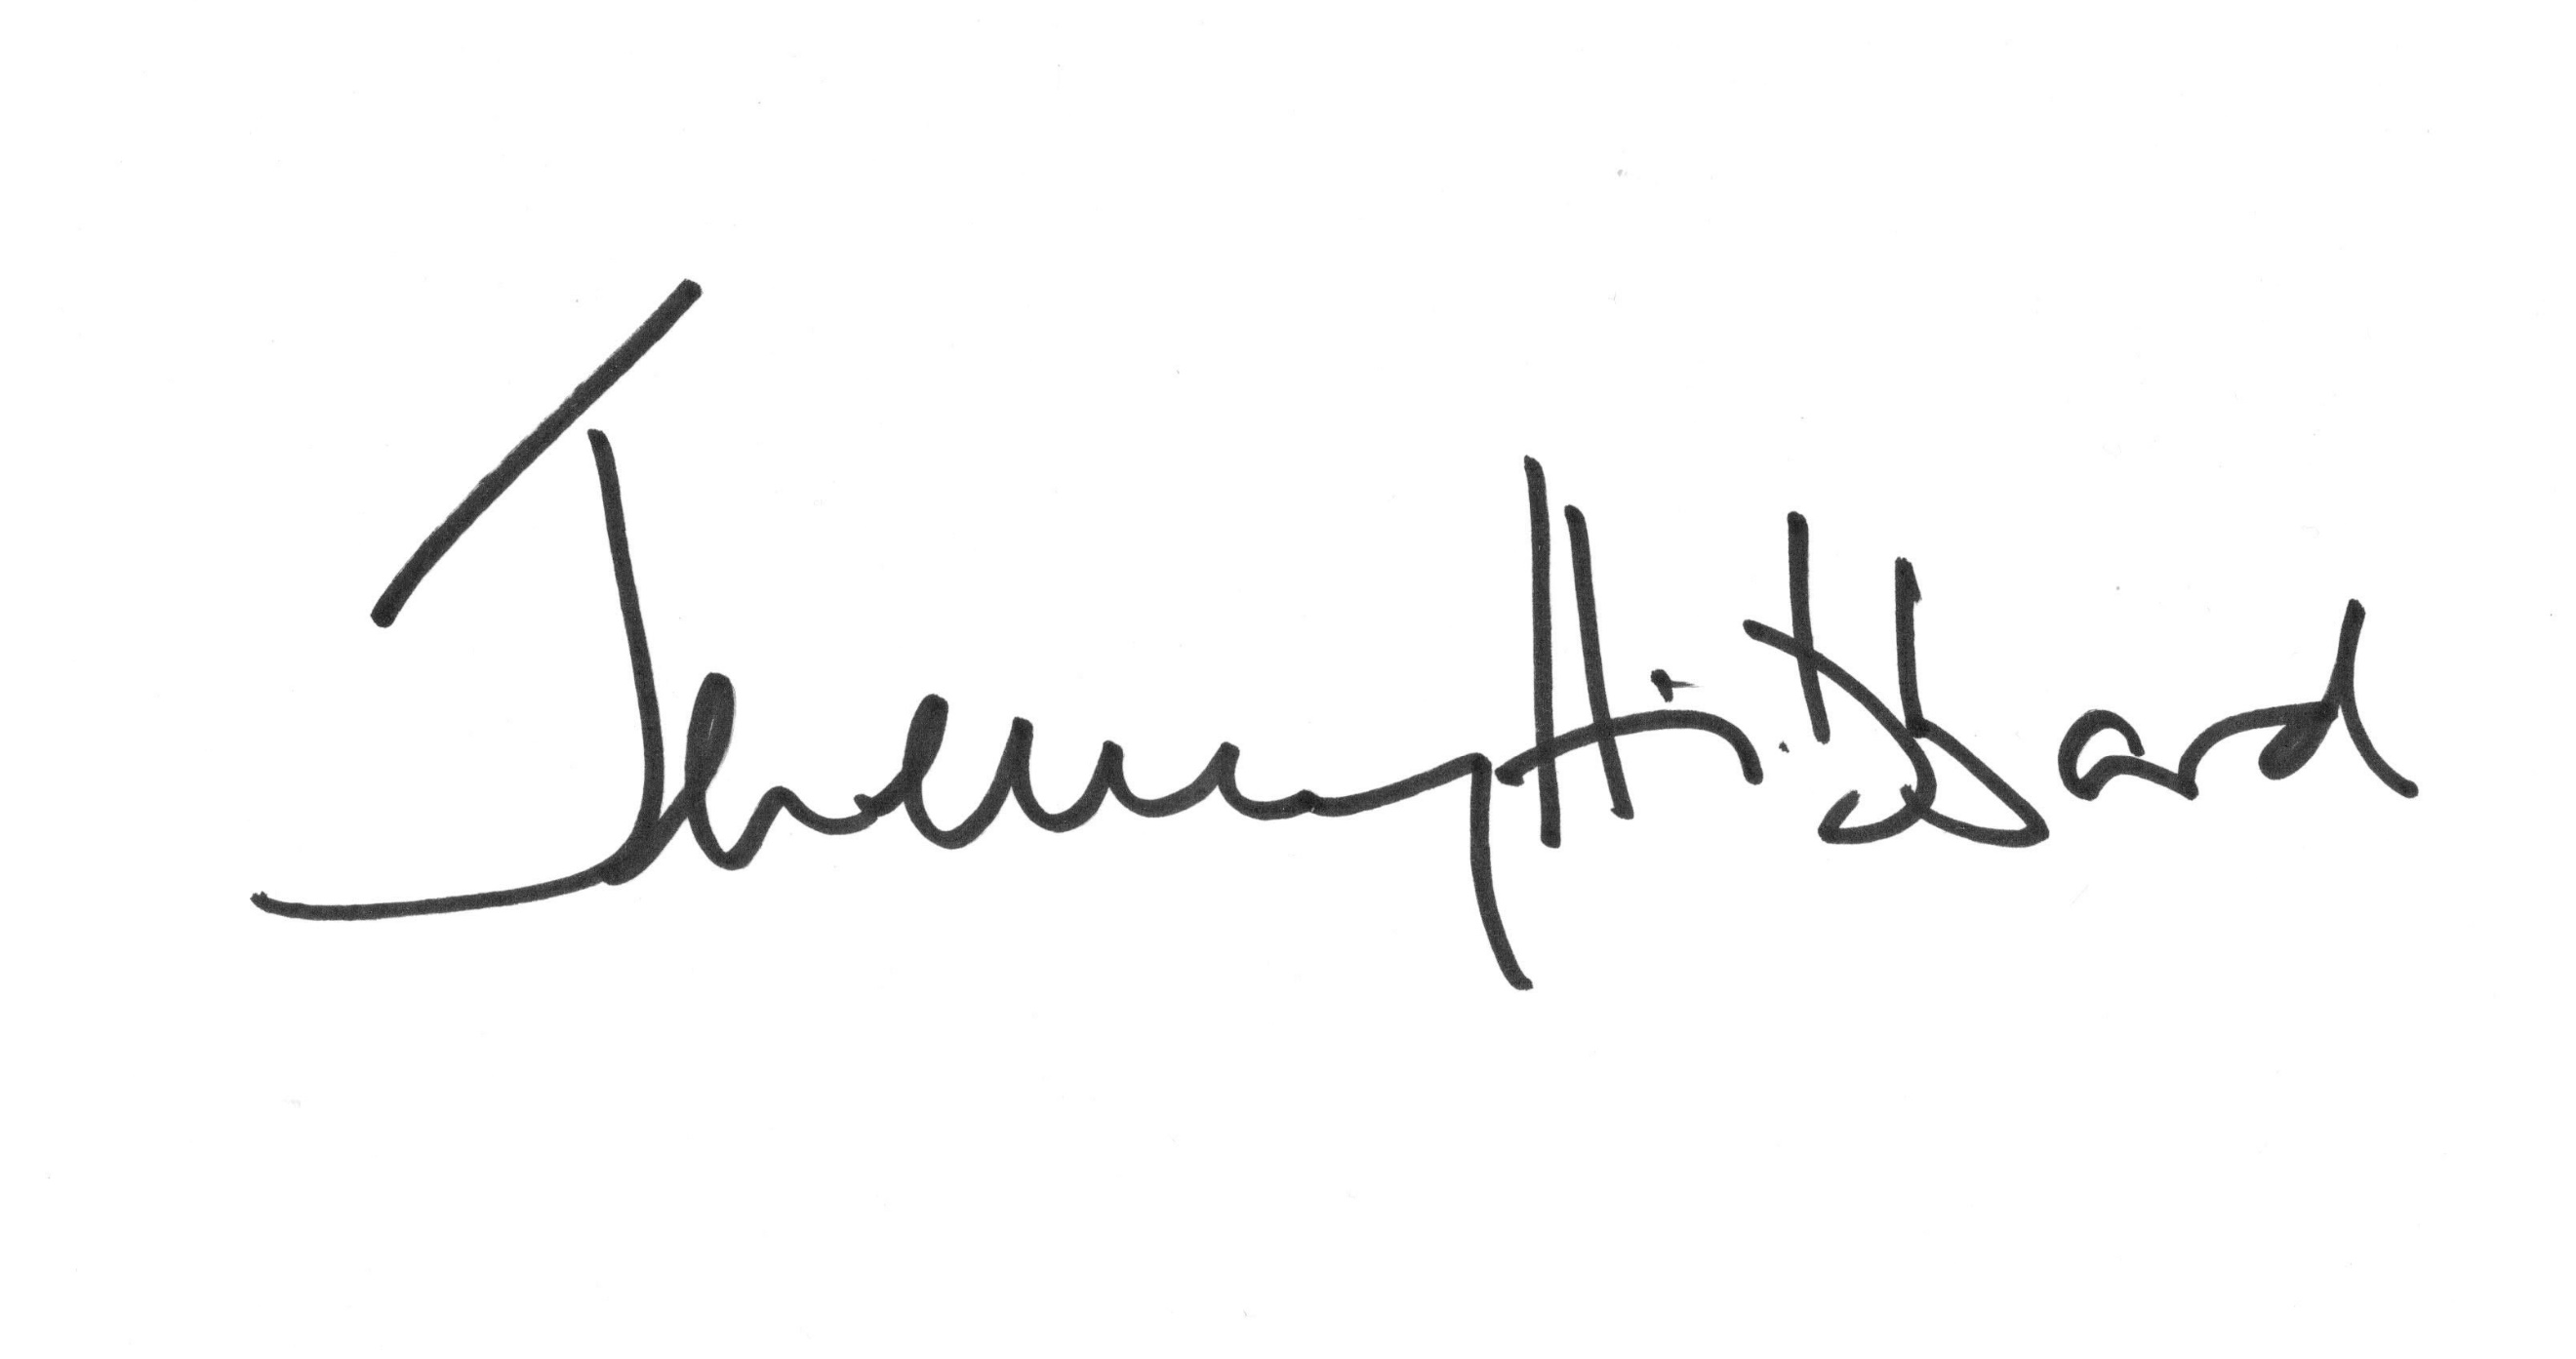 Jeremy Hibbard